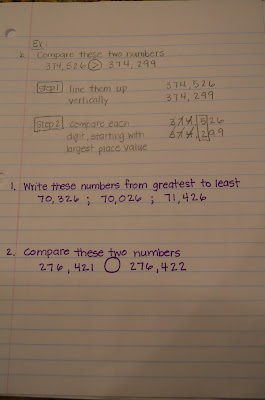 Ex:
2. Compare these two numbers
374,526 > 374,299
Step 1 line them up 374,526
vertically 374,299
Step 2 compare each 374,526
digit, starting with 374,299
largest place value
1. Write these numbers from greatest to least
70,326 ; 70,026 ; 71,426
2. Compare these two numbers
276,421 ○ 276,422